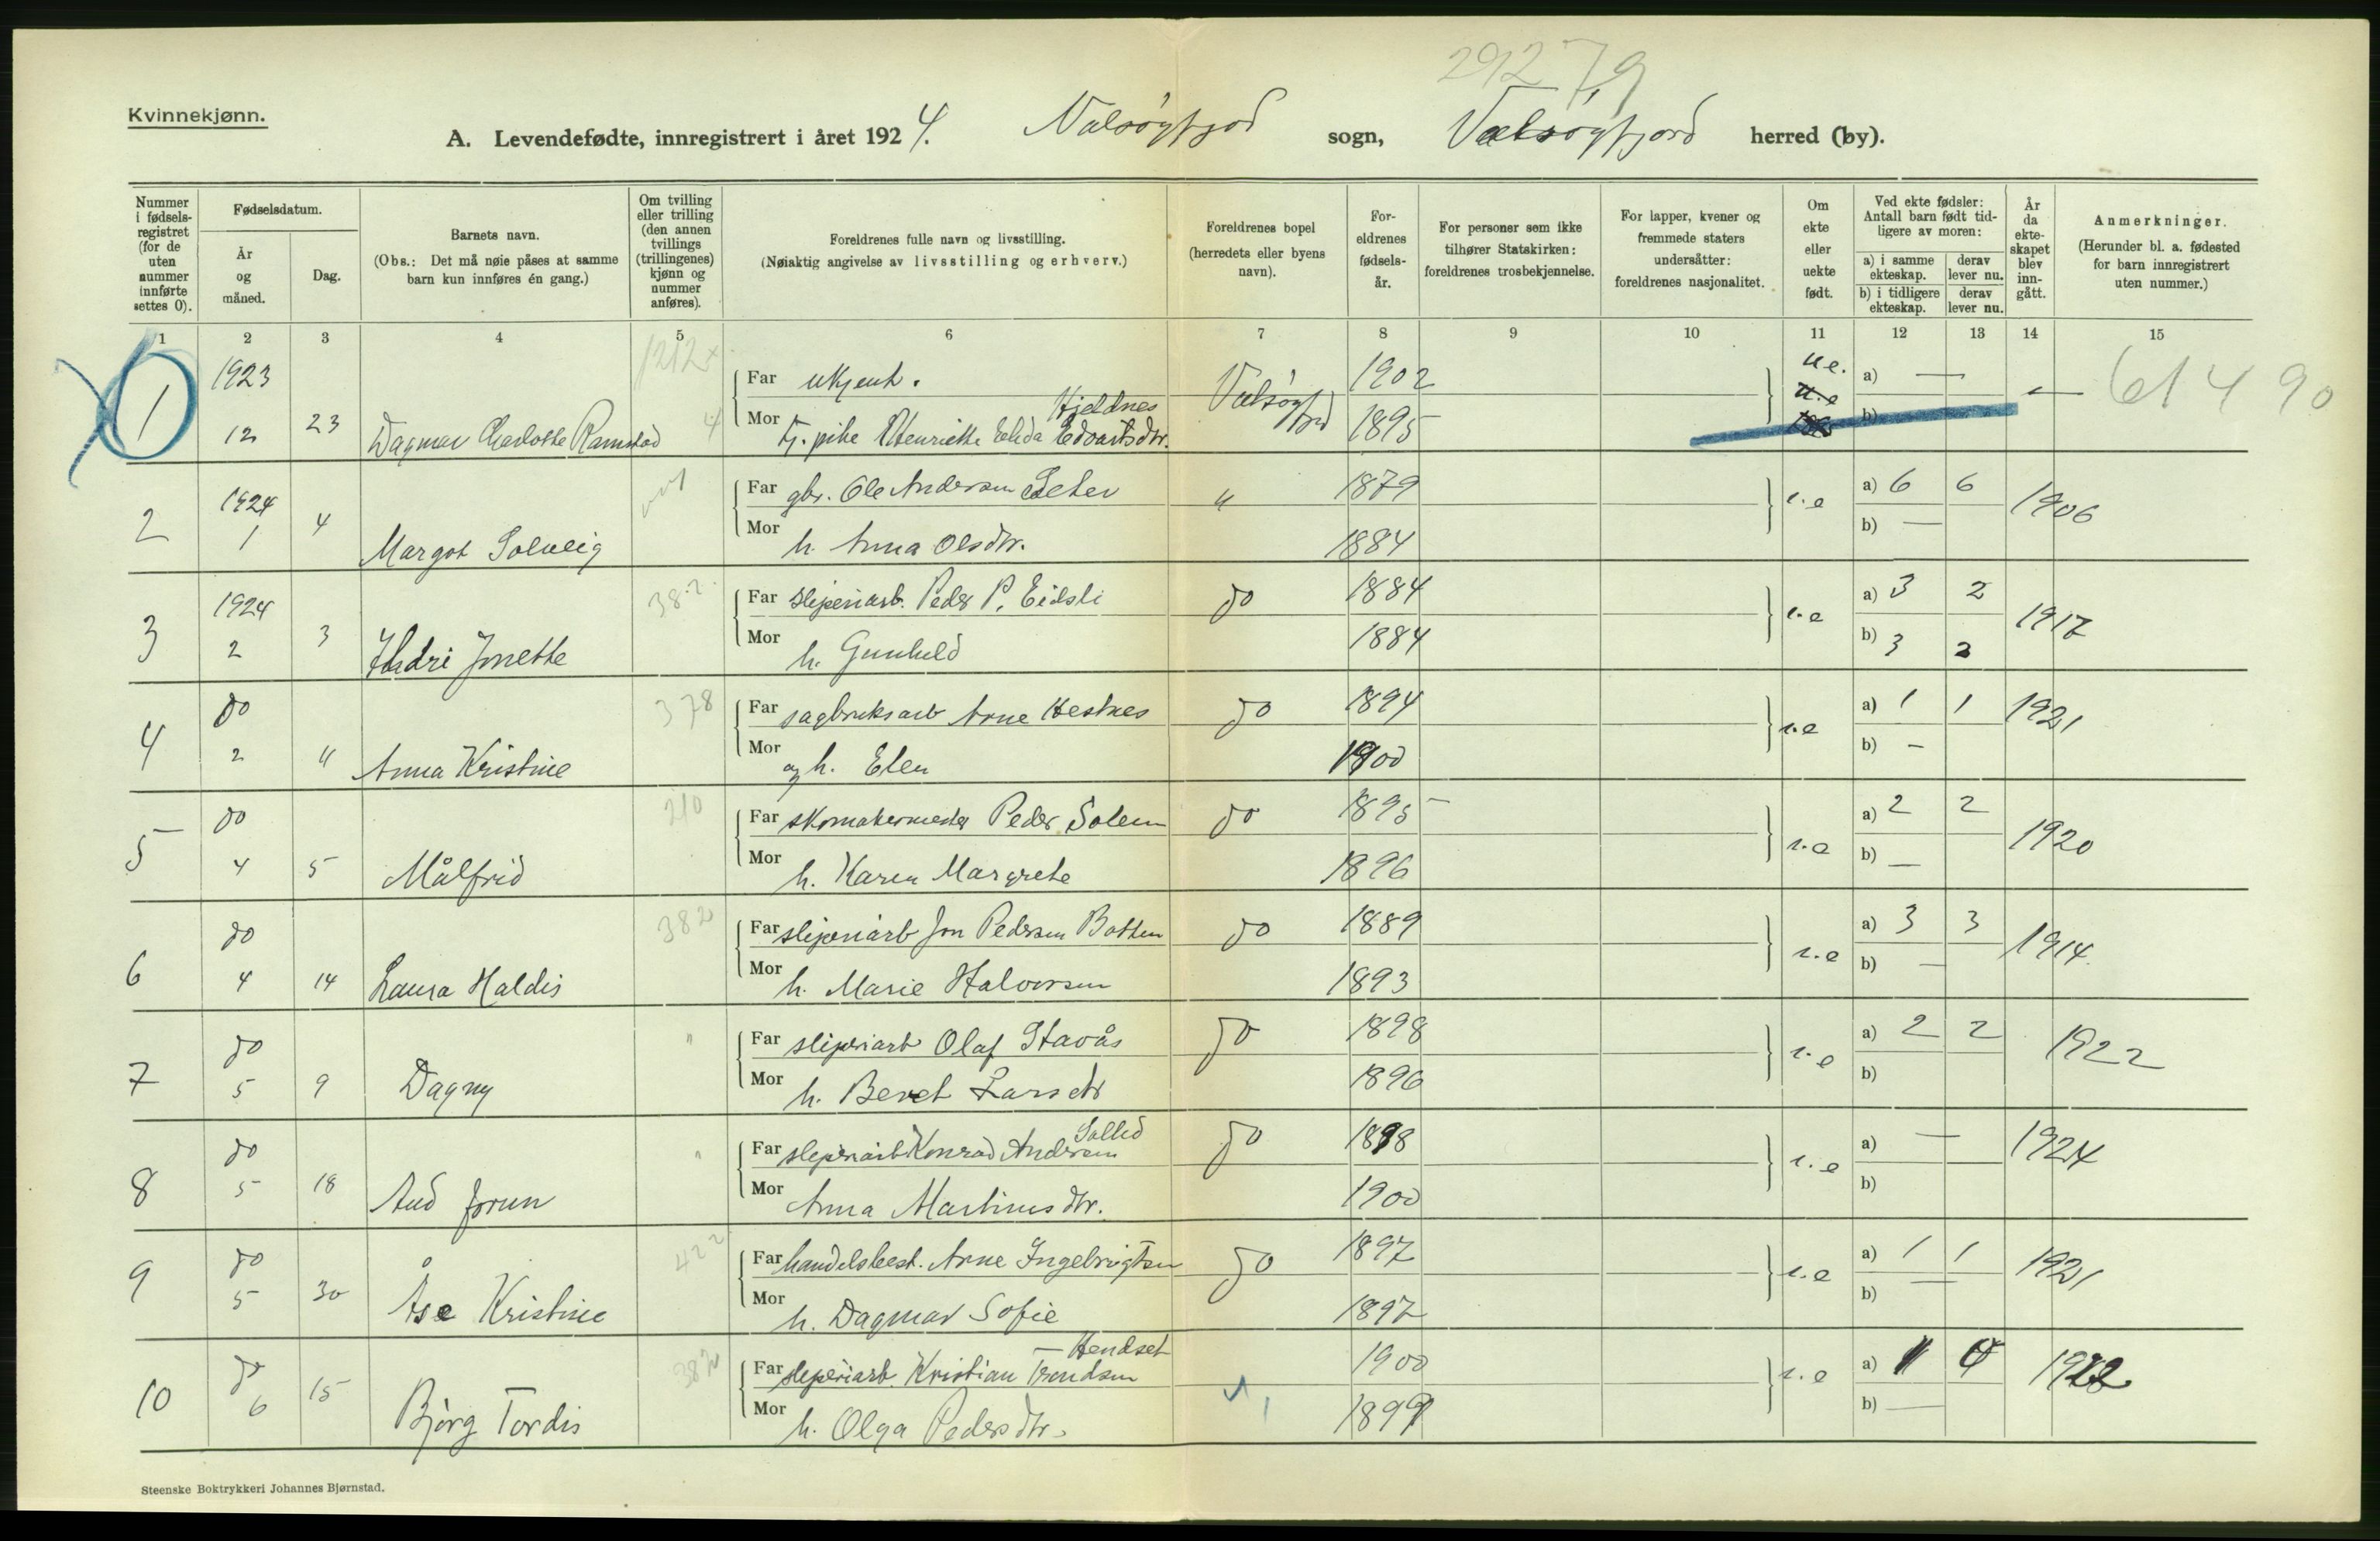 29279
Kvinnekjønn.
A. Levendefødte, innregistrert i året 1924. Valsøyfjord sogn, Valsøyfjord herred (by).
Nummer i fødselsregistret (for de uten nummer innførte settes 0).
Fødselsdatum.
År og måned.
Dag.
Barnets navn.
(Obs.: Det må nøie påses at samme barn kun innføres én gang.)
Om tvilling eller trilling (den annen tvillings (trillingenes) kjønn og nummer anføres).
Foreldrenes fulle navn og livsstilling.
(Nøiaktig angivelse av livsstilling og erhverv.)
Foreldrenes bopel (herredets eller byens navn).
Foreldrenes fødselsår.
For personer som ikke tilhører Statskirken: foreldrenes trosbekjennelse.
For lapper, kvener og fremmede staters undersåtter: foreldrenes nasjonalitet.
Om ekte eller uekte født.
Ved ekte fødsler: Antall barn født tidligere av moren:
a) i samme ekteskap. derav lever nu.
b) i tidligere ekteskap. derav lever nu.
År da ekteskapet blev inngått.
Anmerkninger.
(Herunder bl. a. fødested for barn innregistrert uten nummer.)
1 2 3 4 5 6 7 8 9 10 11 12 13 14 15
1 1923 12 23 Dagmar Charlotte Ramstad 1212
Far ukjent. Valsøyfjord 1902 u.e. a) — — 61490
Mor Tj. pike Henriette Elida Edvartsdtr. Hjeldnes 1895 u.e b)
2 1924 1 4 Margot Solveig
Far gbr. Ole Andersen Seter " 1879 e.e a) 6 6 1906
Mor h. Anna Olsdtr. 1884 b) —
3 1924 2 3 Jonette 382
Far sliperiarb. Peder P. Eidsli do 1884 e.e a) 3 2 1917
Mor h. Gunhild 1884 b) 3 2
4 do 2 " Anna Kristine 378
Far sagbruksarb Arne Hestnes do 1894 e.e a) 1 1 1921
Mor og h. Elen 1900 b) —
5 do 4 5 Målfrid 210
Far skomakermester Peder Solem do 1895 e.e a) 2 2 1920
Mor h. Karen Margrete 1896 b) —
6 do 4 14 Laura Haldis 382
Far sliperiarb Jon Pedersen Botten do 1889 e.e a) 3 3 1914
Mor h. Marie Halvorsen 1893 b) —
7 do 5 9 Dagny "
Far sliperiarb Olaf Stavås do 1898 e.e a) 2 2 1922
Mor h. Beret Larsdtr 1896 b)
8 do 5 18 Aud Jorun "
Far sliperiarb Konrad Andersen do 1898 e.e a) — 1924
Mor Anna Martinusdtr. 1900 b)
9 do 5 30 Åse Kristine 422
Far handelsbest. Arne Ingebrigtsen do 1897 e.e a) 1 1 1921
Mor h. Dagmar Sofie 1897 b) —
10 do 6 15 Bjørg Tordis 382
Far sliperiarb. Kristian Trondsen Hendset 1900 e.e a) 1 0 1922
Mor h. Olga Pedersdtr. 1899 b) —
Steenske Boktrykkeri Johannes Bjørnstad.